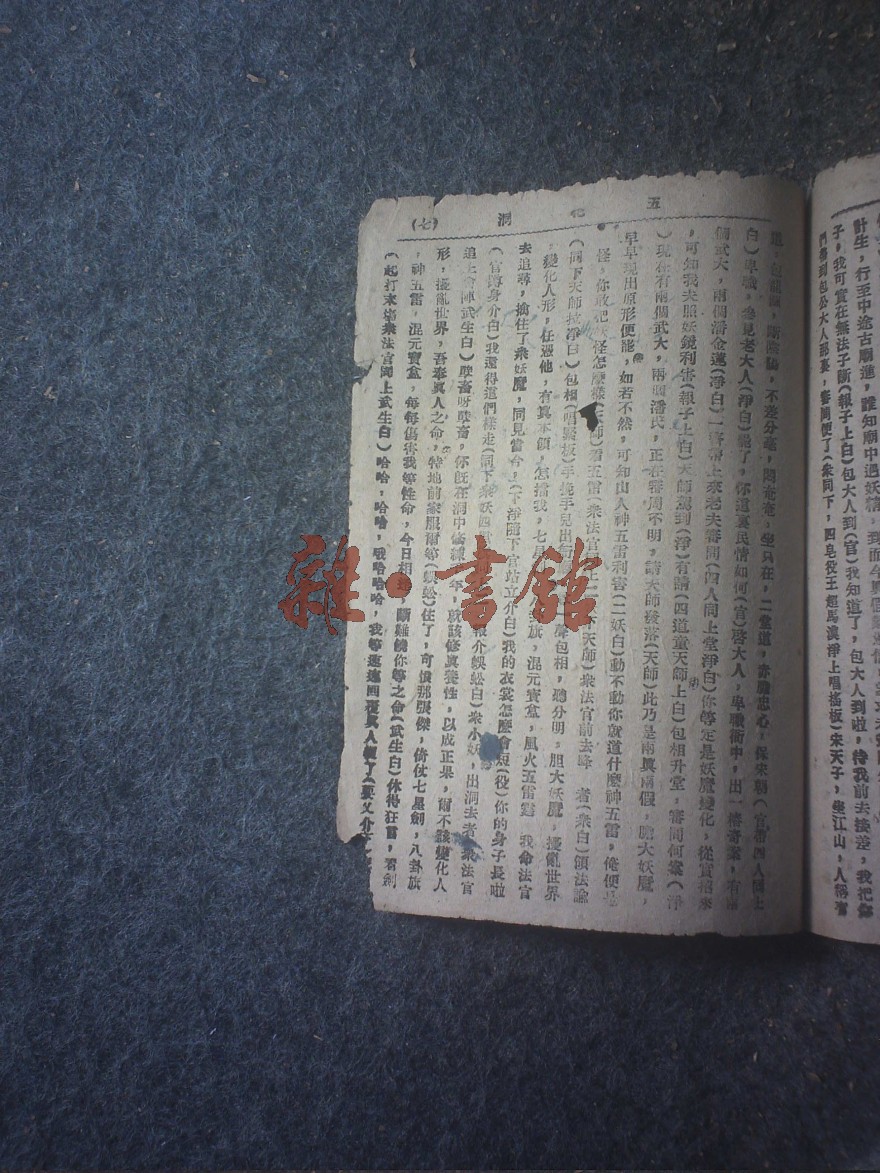 計生，行至中途古廟進，誰知廟中遇妖精，到而今
子，我可實在無法子斷（報子上白）包大人到（官）我知道了，包大人到啦，待我前去接差，我把你
們帶到包公大人那裏，審問便了（衆同下，四皂役王超馬漢淨上唱搖板）宋天子，坐江山，人稱有
五花洞（七）
道，包龍圖，斷陰陽，不差分毫，閒奄奄，坐只在，二堂道，赤膽忠心，保宋朝（官帶四人同上
白）卑職，參見老大人（淨白）罷了，你這裏民情如何（官）啓大人，卑職衙中，出一樁奇案，有兩
個武大，兩個潘金蓮（淨白）一齊帶上來老夫審問（四人同上堂淨白）你等定是妖魔變化，從實招來
，可知我夫照妖鏡利害（報子上白）天師駕到（淨）有請（四道童天師上白）包相升堂，審問何案（淨
）現在有兩個武大，兩個潘氏，正在審問不明，請天師發落（天師）此乃是兩眞兩假，膽大妖魔，
早早現出原形便罷，如若不然，可知山人神五雷利害（二妖白）動不動你就道什麼神五雷，俺便是
怪，你敢把妖怪怎麼樣（天師）看五雷（衆法官同上二 下天師）衆法官前去峰 者（衆白）領法諭
（同下天師拉淨白）包相（唱緊板）手挽手兒出衙 聲包相，聽分明，胆大妖魔，擾亂世界
，變化人形，任憑他，有眞本領，怎擋我，七星 旗，混元寳盒，風火五雷 我命法官
去追尋，擒住了衆妖魔，同見當今，（下淨隨下官站立介白）我的衣裳怎麼會短（役）你的身子長啦
（官蹲身介白）我還得這們樣走（同下衆妖四 報介蜈蚣白）衆小妖，出洞去者（衆法官
追上會陣武生白）孽畜呀孽畜，你旣在洞中修練 年，就該修眞養性，以成正果，爾不該變化人
形，擾亂世界，吾奉眞人之命，特地前來服爾等（蜈蚣）住了，可恨那張傑，倚仗七星劍，八卦旗
，神五雷，混元寳盒，每每傷害我等性命，今日相 斷難饒你等之命（武生白）休得狂言，看劍
（起打末塲衆法官同上武生白）哈哈，哈哈，哦哈哈哈，我等速速回覆眞人便了（衆
雜·書館